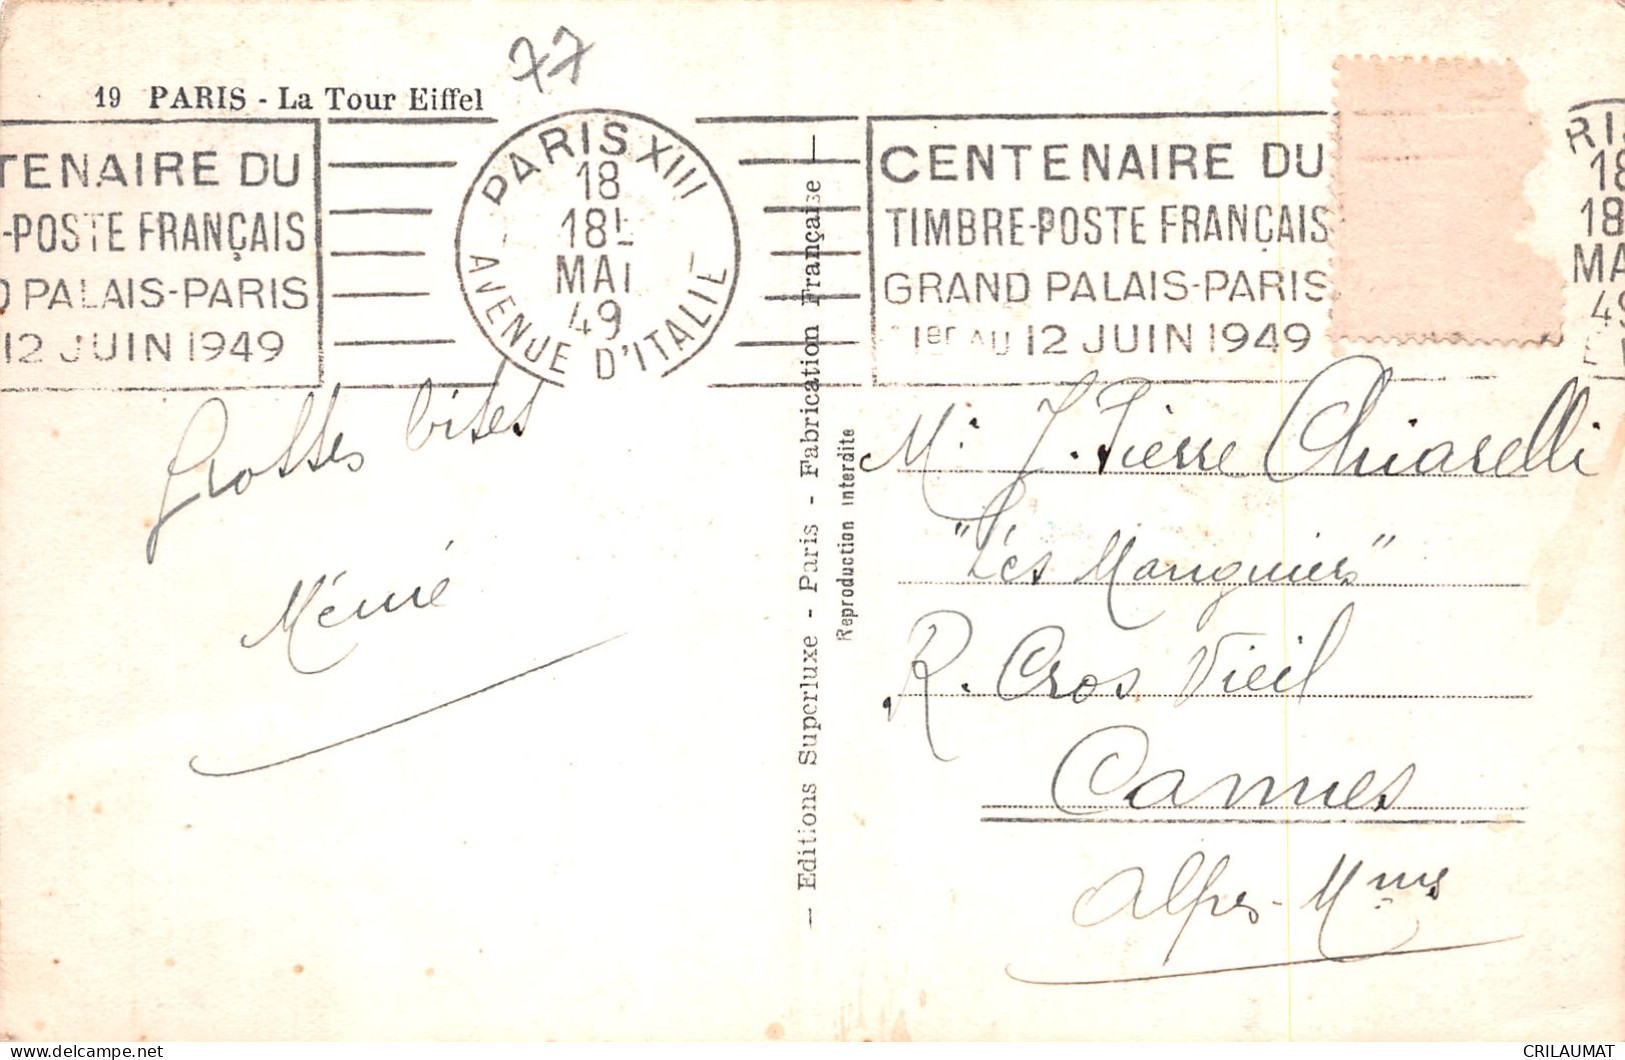 77
19 PARIS - La Tour Eiffel
TENAIRE DU
-POSTE FRANÇAIS
D PALAIS-PARIS
12 JUIN 1949
PARIS XIII
18
18H
MAI
49
AVENUE D'ITALIE
CENTENAIRE DU
TIMBRE-POSTE FRANÇAIS
GRAND PALAIS-PARIS
1er AU 12 JUIN 1949
RIS
18
18
MA
49
Grosses bises
Mémé
— Editions Superluxe - Paris - Fabrication Française —
Reproduction interdite
Mr J. Pierre Chiarelli
"Les Manguiers"
R. Cros Vieil
Cannes
Alpes-Mmes
CRILAUMAT